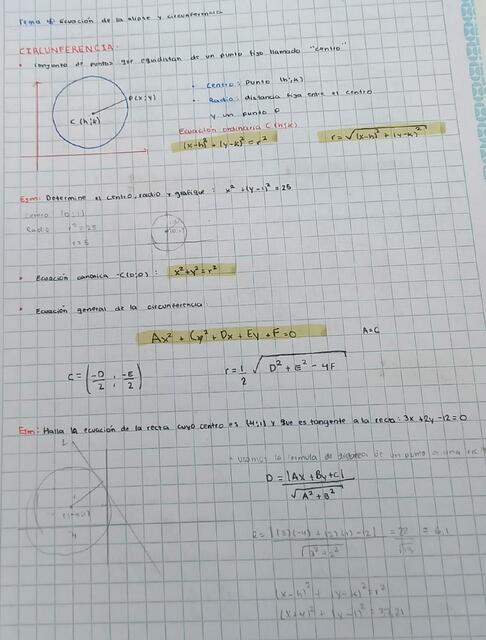 Tema 4: Ecuación de la elipse y circunferencia
CIRCUNFERENCIA:
• Conjunto de puntos que equidistan de un punto fijo llamado "centro"
P(x;y)
C(h;k)
• Centro: Punto (h;k)
• Radio: distancia fija entre el centro
y un punto P
Ecuación ordinaria C(h;k)
(x-h)² + (y-k)² = r²
r = √((x-h)² + (y-k)²)
Ejm: Determine el centro, radio y grafique: x² + (y-1)² = 25
Centro (0;1)
Radio r² = 25
r = 5
• Ecuación canonica -C(0;0): x² + y² = r²
• Ecuación general de la circunferencia:
Ax² + Cy² + Dx + Ey + F = 0
A=C
C = (-D/2 ; -E/2)
r = 1/2 √(D² + E² - 4F)
Ejm: Halla la ecuación de la recta cuyo centro es (-4;1) y que es tangente a la recta: 3x + 2y - 12 = 0
L
• Usamos la formula de distancia de un punto a una
D = |Ax + By + C| / √(A² + B²)
R = |(3)(-4) + (2)(1) - 12| / √(3² + 2²) = 22/√13 = 6,1
(x-h)² + (y-k)² = r²
(x+4)² + (y-1)² = 37,21